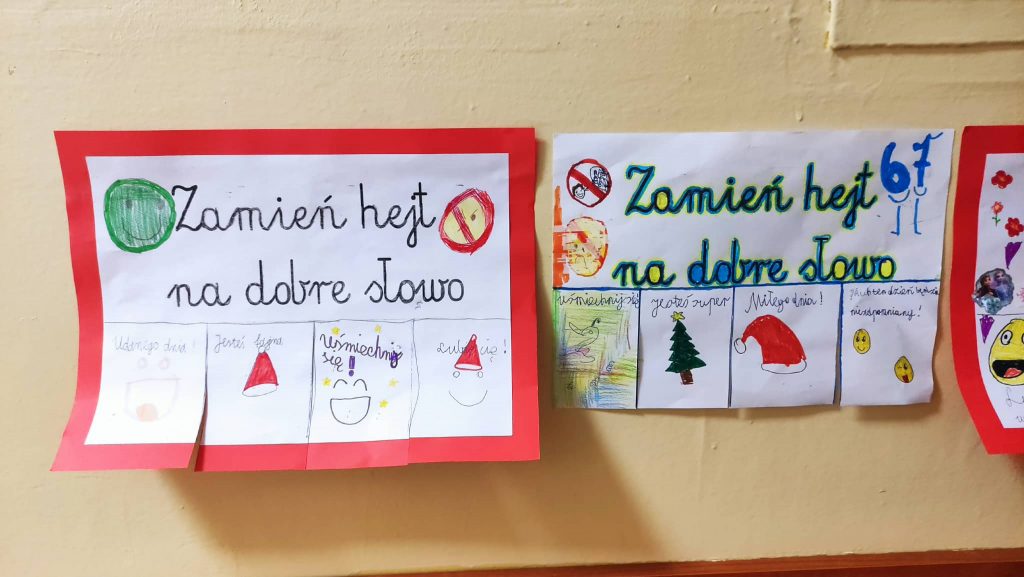 Zamień hejt
na dobre słowo
Udanego dnia!
Jesteś fajna
Uśmiechnij
się!
Lubię cię!
67
Zamień hejt
na dobre słowo
uśmiechnij się
Jesteś super
Miłego dnia!
ten dzień będzie
niezapomniany!